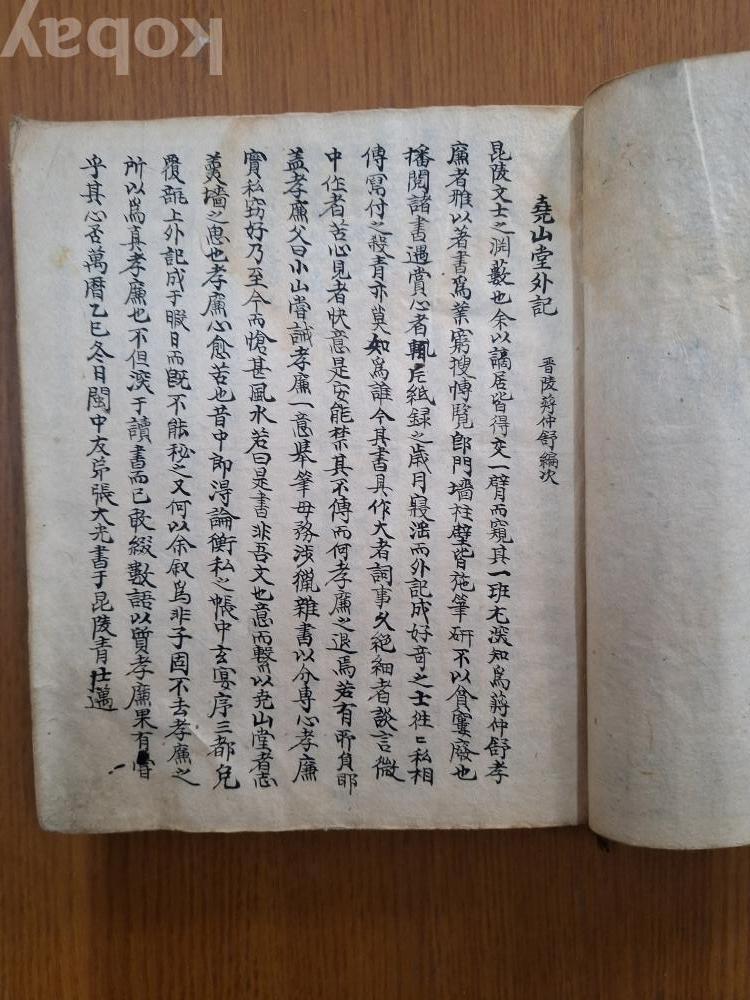 kobay
堯山堂外記 晋陵蒋仲舒編次
昆陵文士之渊藪也余以謫居皆得交一臂而窺其一班尤深知爲蒋仲舒孝
廉者雅以著書爲業窮搜愽覧郎門墻柱壁皆施筆研不以貧寠廢也
播閲諸書遇賞心者輒片紙録之歲月寢滛而外記成好竒之士徃〻私相
傳寫付之殺青亦莫知爲誰今其書具作大者詞事久絶細者談言微
中作者苦心見者快意是安能禁其不傳而何孝廉之退焉若有所負耶
盖孝廉父曰小山嘗誡孝廉一意舉筆毋務渉獵雜書以分専心孝廉
實私窃好乃至今而愴甚風水若曰是書非吾文也意而繫以尭山堂者志
羹墻之思也孝廉心愈苦也昔中郎淂論衡私之帳中玄宴序三都兌
覆瓿上外記成于暇日而旣不能秘之又何以余叙爲非子固不去孝廉之
所以爲真孝廉也不但深于讀書而已敢綴數語以質孝廉果有當
乎其心否萬曆乙巳冬日閩中友弟張大光書于昆陵青